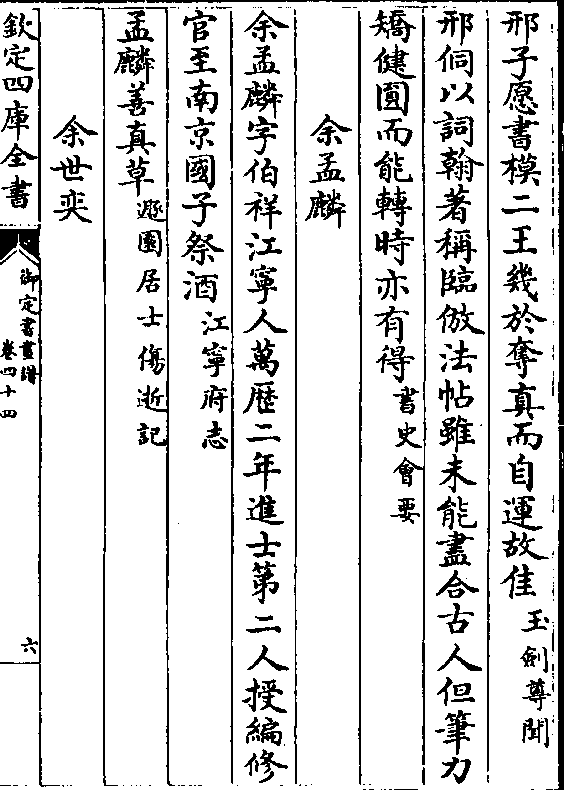 邢子愿書模二王幾於奪真而自運故佳玉劍尊聞
邢侗以詞翰著稱臨倣法帖雖未能盡合古人但筆力
矯健圓而能轉時亦有得書史會要
余孟麟
余孟麟字伯祥江寧人萬歷二年進士第二人授編修
官至南京國子祭酒江寧府志
孟麟善真草遯園居士傷逝記
余世奕
欽定四庫全書
御定書畫譜
卷四十四
六